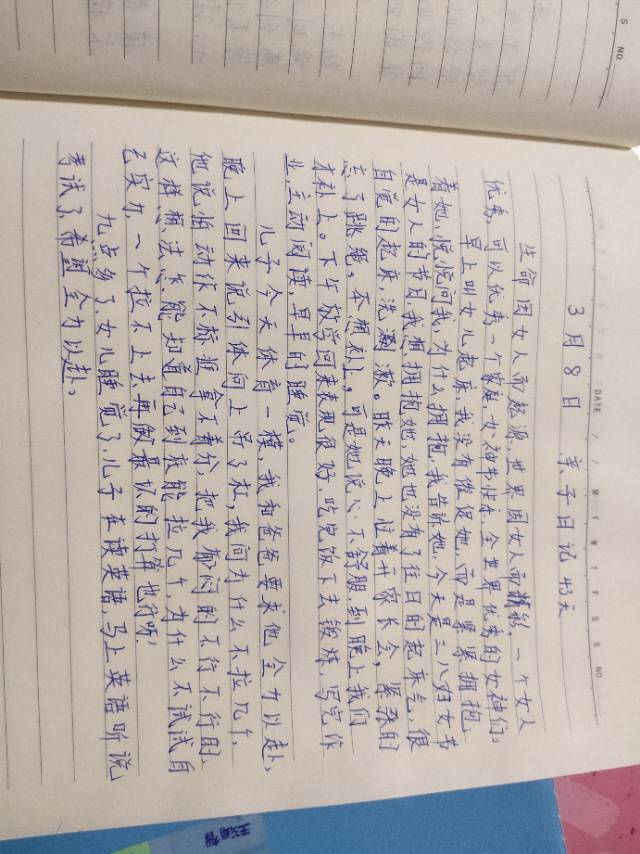 3月8日 亲子日记43天
生命因女人而起源,世界因女人而精彩,一个女人
优秀,可以优秀一个家庭,女神节快乐,全世界优秀的女神们。
早上叫女儿起床,我没有催促她,而是紧紧拥抱
着她,悦悦问我,为什么拥抱,我告诉她,今天是三八妇女节
是女人的节日我想拥抱她,她也没有了往日的起床气,很
自觉的起床,洗漱。昨天晚上忙着开家长会,紧张的
忘了跳绳,本想补上,可是她说心不舒服,到晚上我们
才补上。下午放学回来表现很好,吃完饭下去锻炼,写完作
业,主动阅读,早早的睡觉。
儿子今天体育一模,我和爸爸要求他全力以赴,
晚上回来说引体向上吊了杠,我问为什么不拉几个,
他说怕动作不标准拿不着分,把我郁闷的不行不行的,
这样想法怎能知道自己到底能拉几个,为什么不试试自
己实力一个拉不上去再做最坏的打算也行呀!
九点多了,女儿睡觉了,儿子在读英语,马上英语听说
考试了,希望全力以赴。
DATE / /
NO.
S
NO.